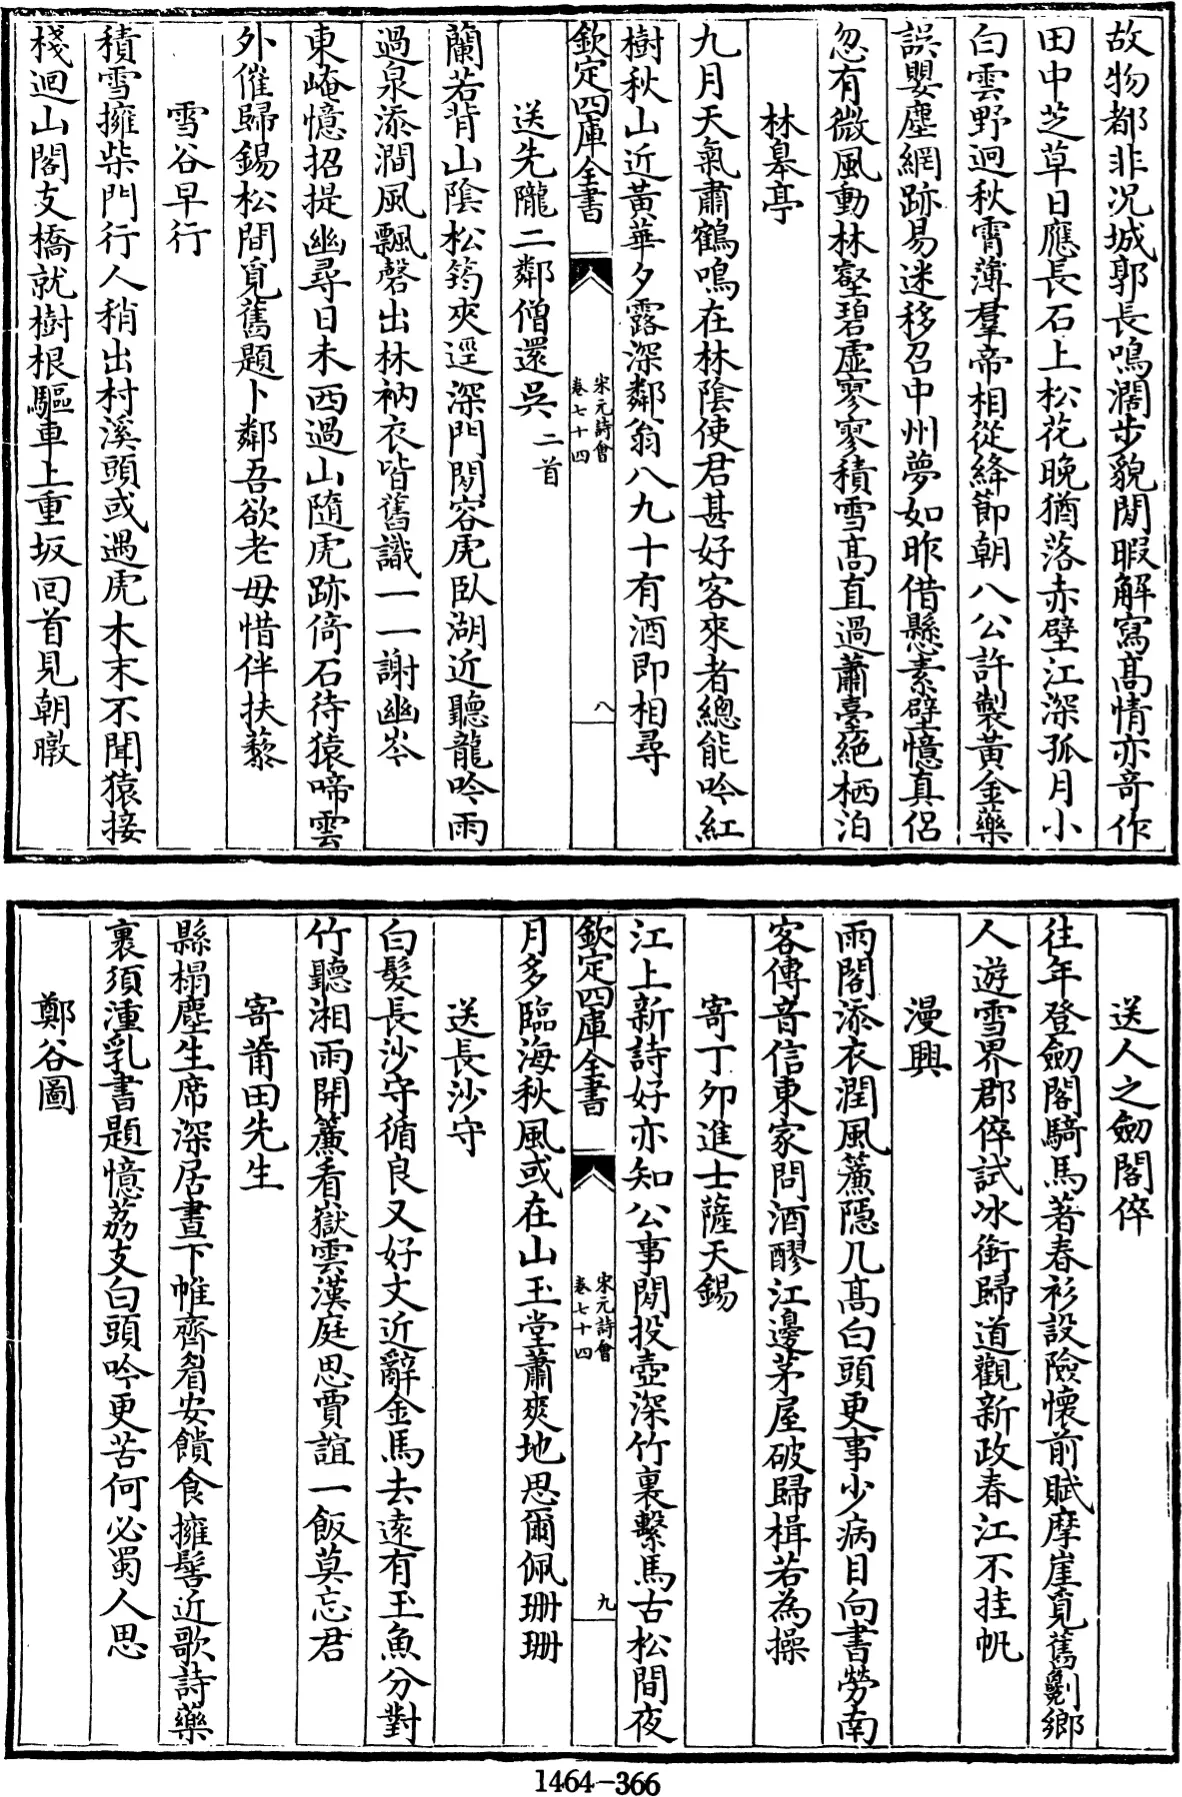 故物都非况城郭長鳴濶步貌閒暇解寫髙情亦竒作
田中芝草日應長石上松花晚猶落赤壁江深孤月小
白雲野迥秋霄薄羣帝相從絳節朝八公許製黄金藥
誤嬰塵網跡易迷移召中州夢如昨借懸素壁憶真侣
忽有微風動林壑碧虚寥寥積雪髙直過蕭臺絶栖泊
林皋亭
九月天氣肅鶴鳴在林陰使君甚好客來者總能吟紅
樹秋山近黄華夕露深鄰翁八九十有酒即相尋
欽定四庫全書
宋元詩會
卷七十四
八
送先隴二鄰僧還吳二首
蘭若背山陰松筠夾逕深門閒容虎臥湖近聽龍吟雨
過泉添澗風飄磬出林衲衣皆舊識一一謝幽岑
東崦憶招提幽尋日未西過山隨虎跡倚石待猿啼雲
外催歸錫松間覓舊題卜鄰吾欲老毋惜伴扶藜
雪谷早行
積雪擁柴門行人稍出村溪頭或遇虎木末不聞猿接
棧迴山閣支橋就樹根驅車上重坂回首見朝暾
送人之劒閣倅
往年登劒閣騎馬著春衫設險懷前賦摩崖覓舊劖鄉
人遊雪界郡倅試冰銜歸道觀新政春江不挂帆
漫興
雨閣添衣潤風簾隱几髙白頭更事少病目向書勞南
客傳音信東家問酒醪江邊茅屋破歸楫若為操
寄丁夘進士薩天錫
江上新詩好亦知公事閒投壺深竹裏繫馬古松間夜
欽定四庫全書
宋元詩會
卷七十四
九
月多臨海秋風或在山玉堂蕭爽地思爾佩珊珊
送長沙守
白髮長沙守循良又好文近辭金馬去逺有玉魚分對
竹聽湘雨開簾看嶽雲漢庭思賈誼一飯莫忘君
寄莆田先生
縣榻塵生席深居晝下帷齊眉安饋食擁髻近歌詩藥
裹須湩乳書題憶荔支白頭吟更苦何必蜀人思
鄭谷圖
1464-366